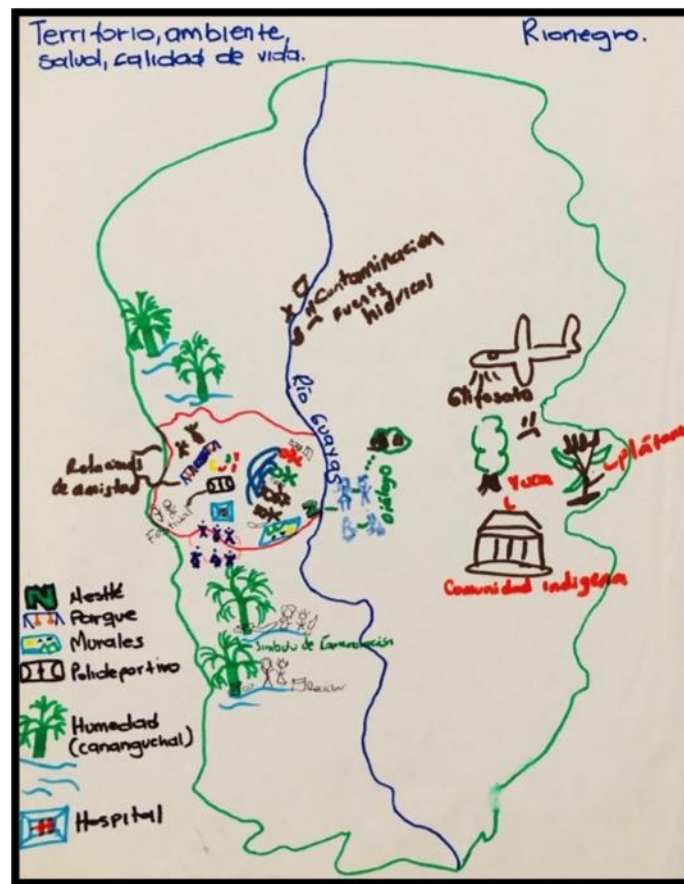 Territorio, ambiente,
salud, calidad de vida.
Rionegro.
Contaminación
fuente
hídrica
Río Guayas
Glifosato
Relaciones
de amistad
Festival
Diálogo
Yuca
plátano
Comunidad indígena
Símbolo de Contaminación
Reciclar
N Nestlé
Parque
Murales
Polideportivo
Humedad
(cananguchal)
Hospital